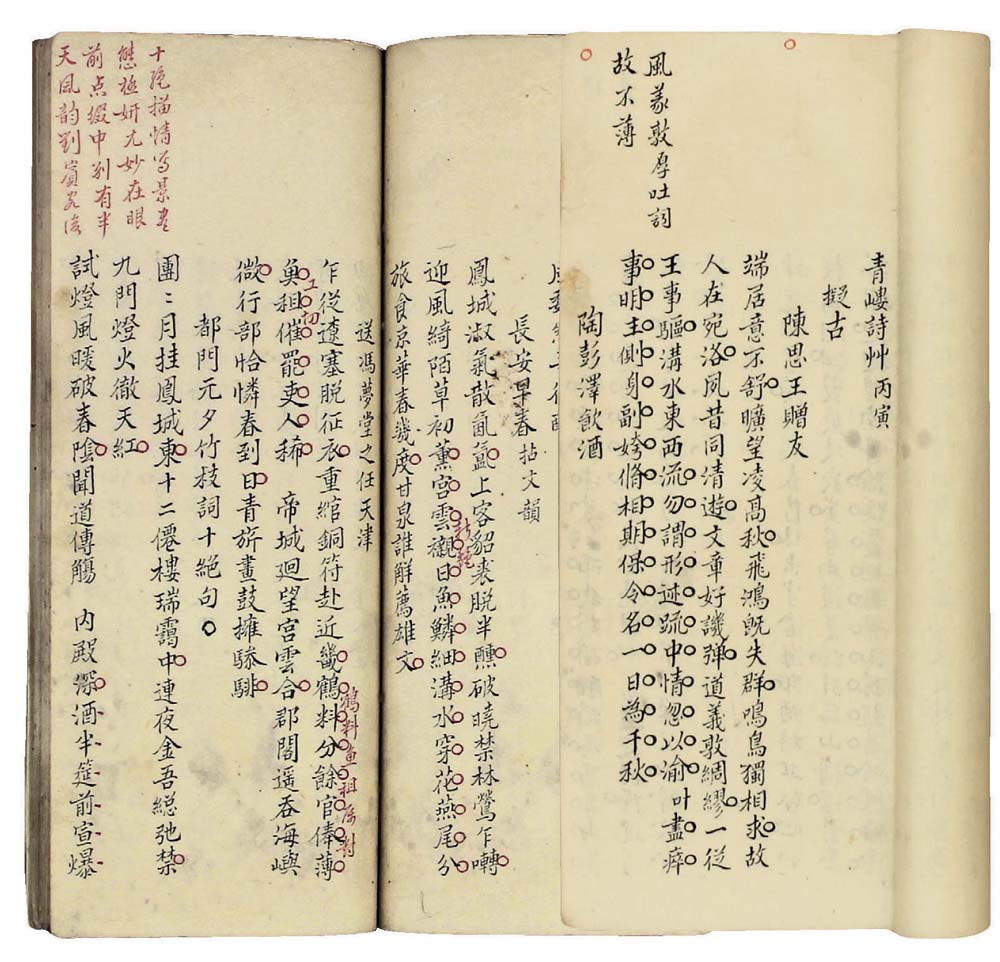 風義敦厚吐詞
故不薄
青嶁詩艸 丙寅
擬古
陳思王贈友
端居意不舒曠望凌髙秋飛鴻旣失群鳴鳥獨相求故
人在宛洛夙昔同清遊文章好譏弹道義敦綢繆一從
王事驅溝水東西流勿謂形迹疏中情忽以渝叶盡瘁
事明主側身副姱脩相期保令名一日為千秋
陶彭澤飲酒
長安早春拈文韻
鳳城淑氣散氤氲上客貂裘脱半醺破曉禁林鶯乍囀
迎風綺陌草初薰宮雲襯日魚鱗細溝水穿花燕尾分
旅食京華春幾度甘泉誰解薦雄文
送馮夢堂之任天津
乍從遼塞脱征衣重綰銅符赴近畿鶴料分餘官俸薄
鶴料魚租條對
魚租催罷吏人稀 帝城迴望宮雲合郡閣遥吞海嶼
工切
微行部恰憐春到日青旂畫鼓擁驂騑
都門元夕竹枝詞十絕句
十絕描情写景盡
態極妍尤妙在眼
前点綴中別有半
天風韵劉賓客後
團〻月挂鳳城東十二僊樓瑞靄中連夜金吾縂弛禁
九門燈火徹天紅
試燈風暖破春陰聞道傳觴 内殿深酒半筵前宣爆